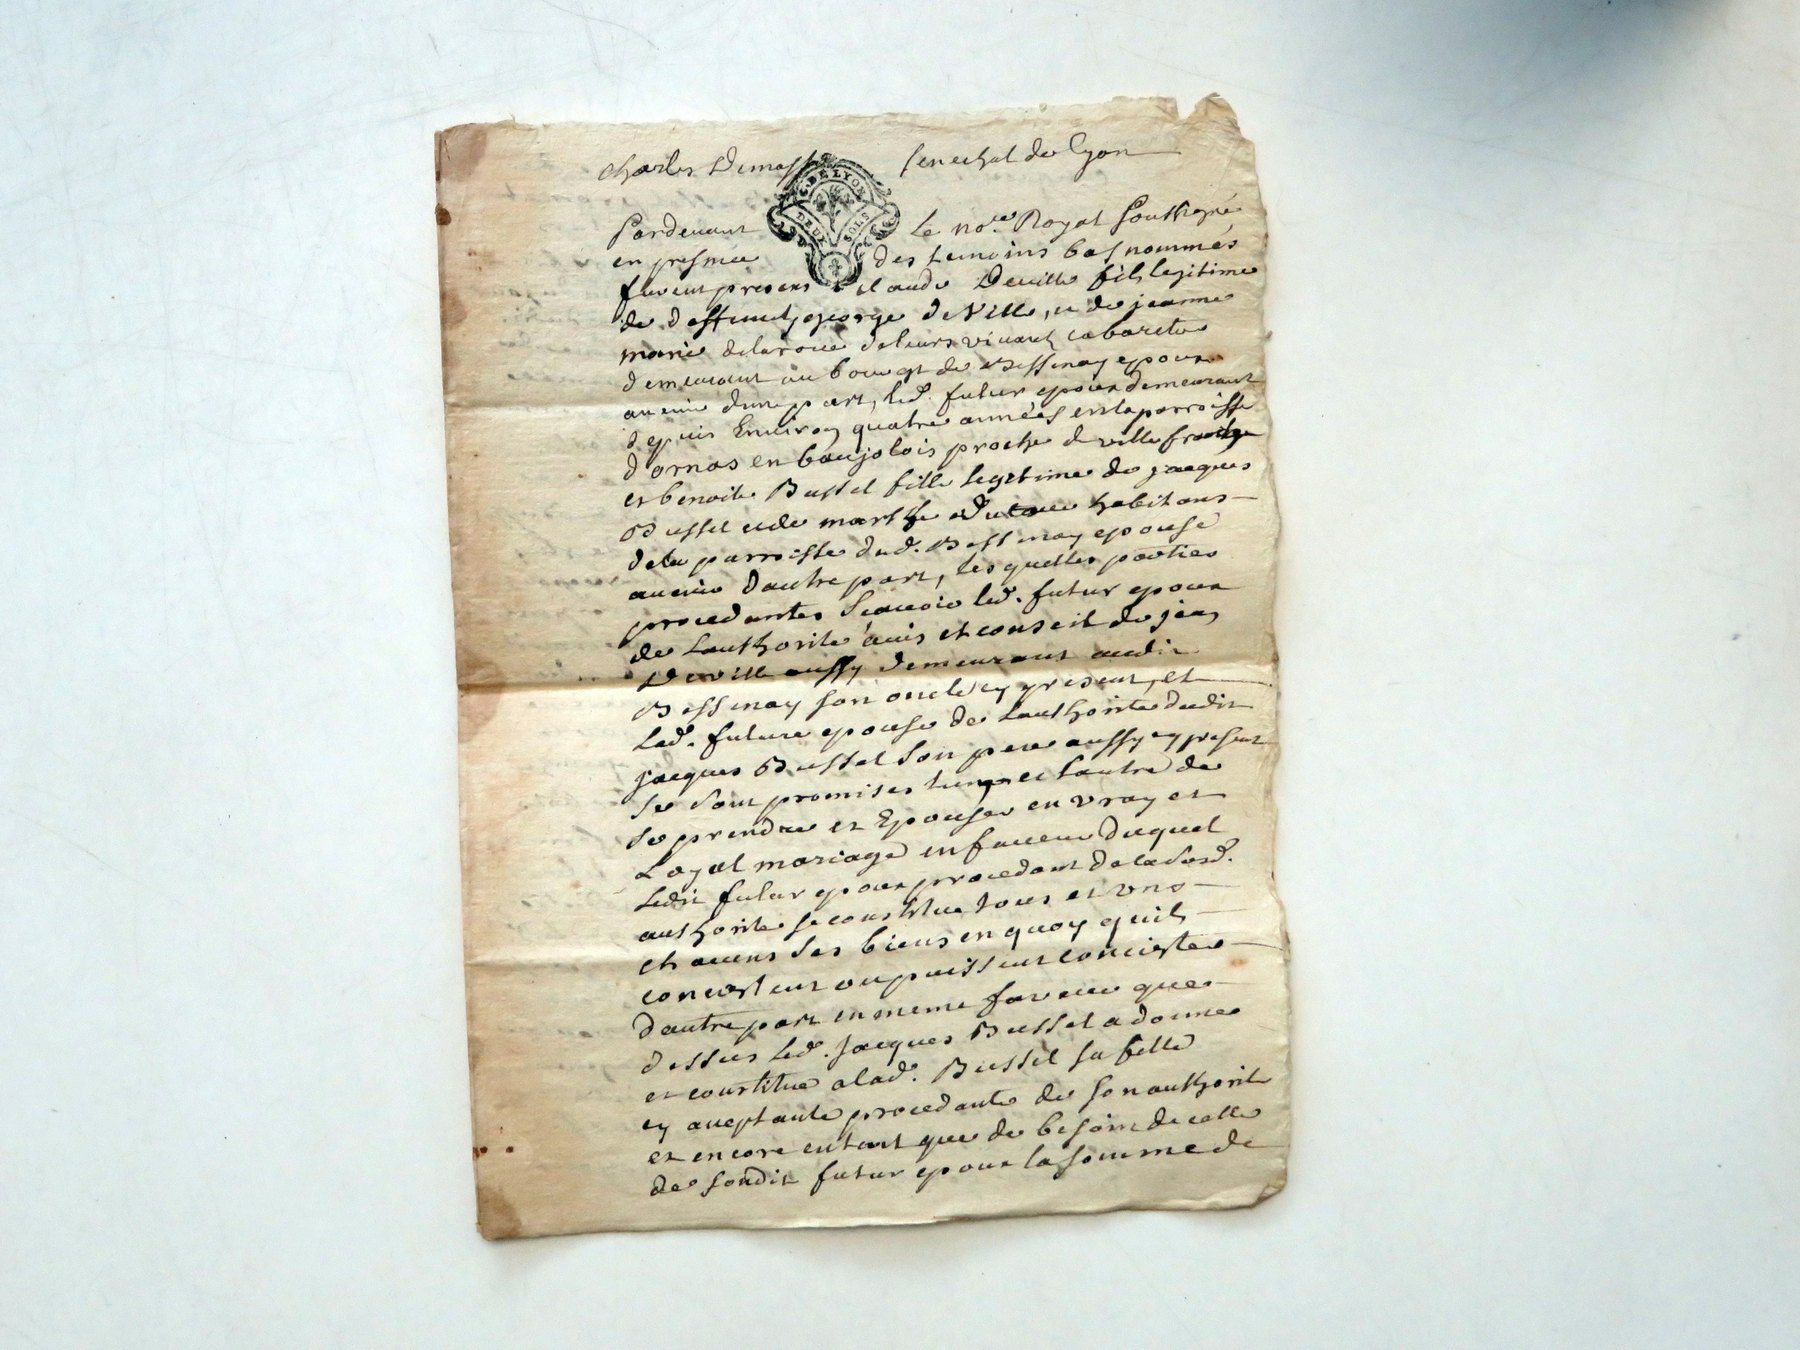 charles Demass senechal de lyon
G. DE LYON
DEUX SOLS
Pardevant Le no.re Royal soussigné
en presence des temoins bas nommés
furent presens claude Deville fils legitime
de deffunt george de Ville, et de jeanne
marie delaroue deleurs vivant cabaretier
demeurant au bourgt de Bessenay epoux
avenir dune part, led. futur epoux demeurant
depuis Environ quatre années en la parroisse
d'ornas en baujolois proche de ville franche
et benoite Bussel fille legitime de jacques
Bussel et de marthe habitans
dela parroisse dud. Bessenay epouse
avenir dautre part, lesquelles parties
procedantes scavoir led. futur epoux
de Lauthorité avis et conseil de jean
Deville aussy demeurant audit
Bessenay son oncle cy present, et
Lad. future epouse de Lauthorité dudit
jacques Bussel son pere aussy cy present
se sont promises lune et lautre de
se prendre et Epouser en vray et
Loyal mariage en faveur duquel
Ledit futur epoux procedant de la susd.
authorité se constitue tous et uns
chacuns ses biens en quoy quils
concistent ou puissent concister
dautre part en meme faveur que
dessus led. jacques Bussel a donné
et constitué a lad. Bussel sa fille
cy aceptante procedante de son authorité
et encore entant que de besoin de celle
de sondit futur epoux la somme de